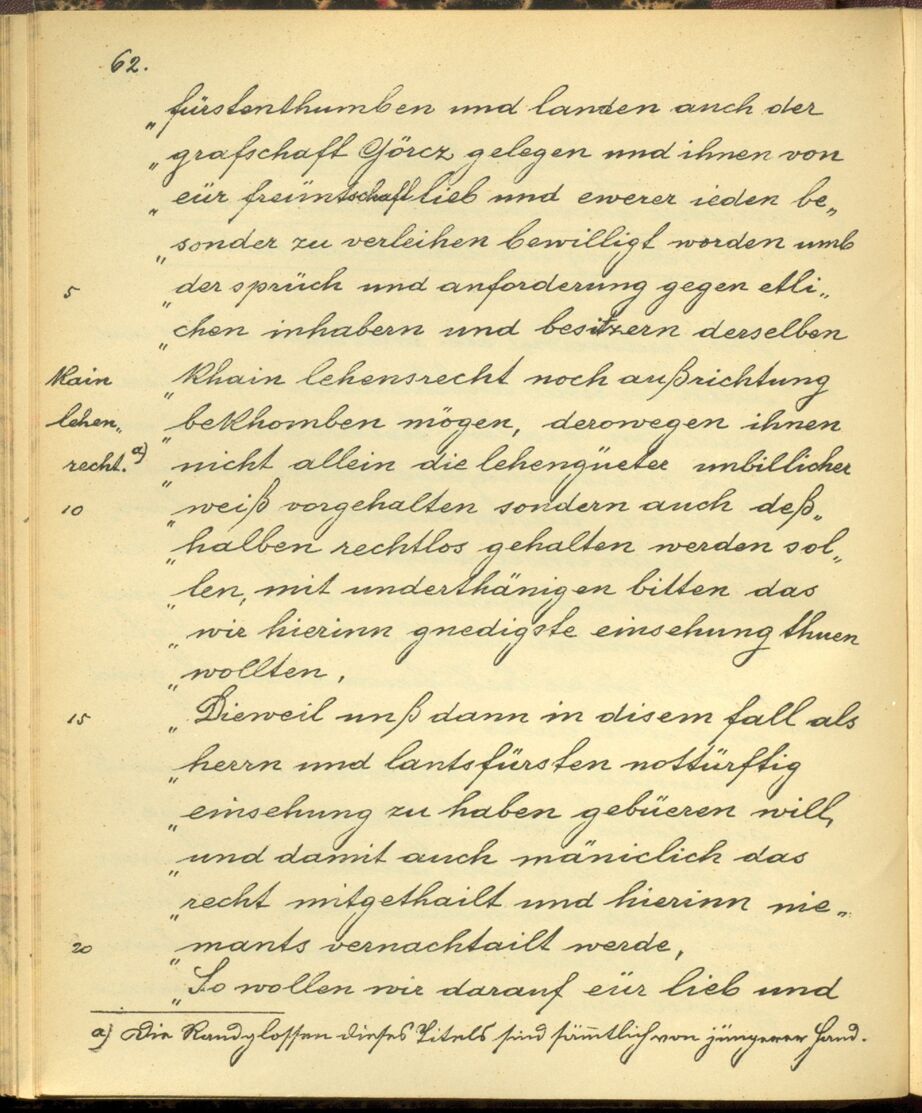 62.
„fürstenthumben und landen auch der
„grafschaft Görcz gelegen und ihnen von
„eür freüntschaft lieb und ewerer ieden be„
„sonder zu verleihen bewilligt worden umb
5 „der sprüch und anforderung gegen etli„
„chen inhabern und besitzern derselben
Kain „khain lehensrecht noch außrichtung
lehen„ „bekhomben mögen, derowegen ihnen
recht.a) „nicht allein die lehengüeter unbillicher
10 „weiß vorgehalten sondern auch deß„
„halben rechtlos gehalten werden sol„
„len, mit underthänigen bitten das
„wir hierinn gnedigste einsehung thuen
„wollten,
15 „Dieweil unß dann in disem fall als
„herrn und lantsfürsten nottürftig
„einsehung zu haben gebüeren will,
„und damit auch mäniclich das
„recht mitgethailt und hierinn nie„
20 „mants vernachtailt werde,
„So wollen wir darauf eür lieb und
a) Die Randglossen dieses Titels sind sämmtlich von jüngerer Hand.